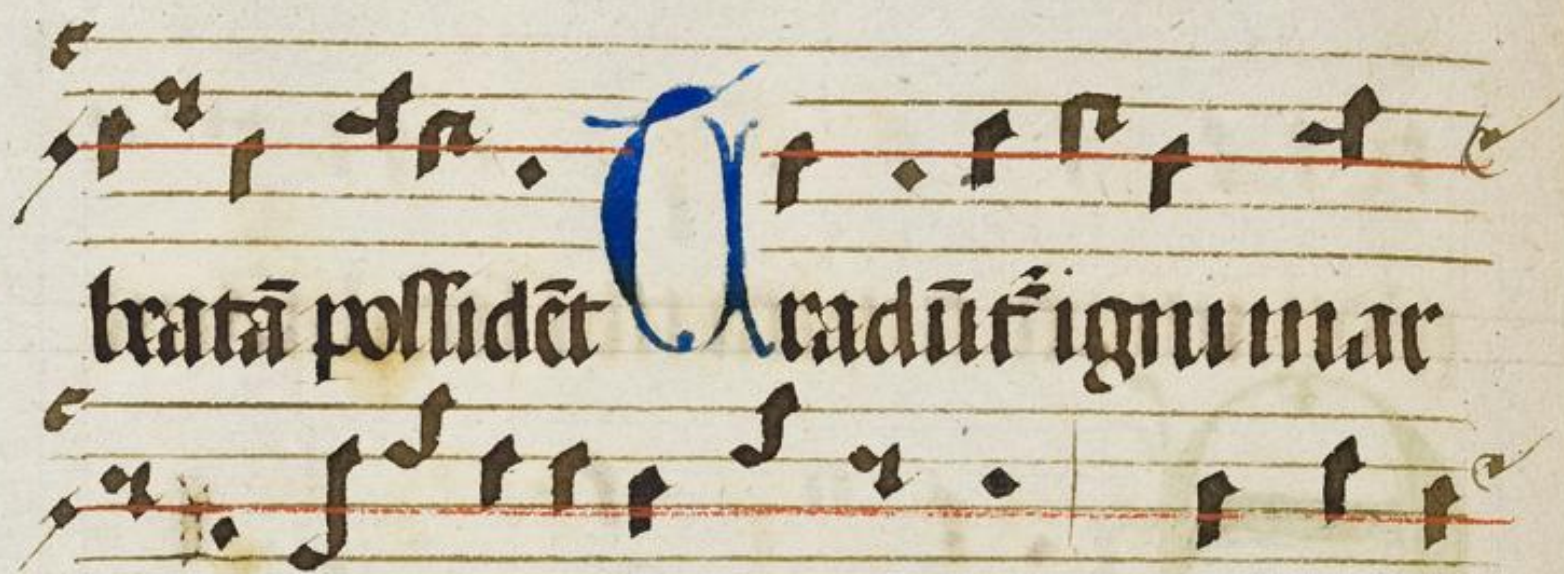 bratā possidēt Traduntͬ igni mar